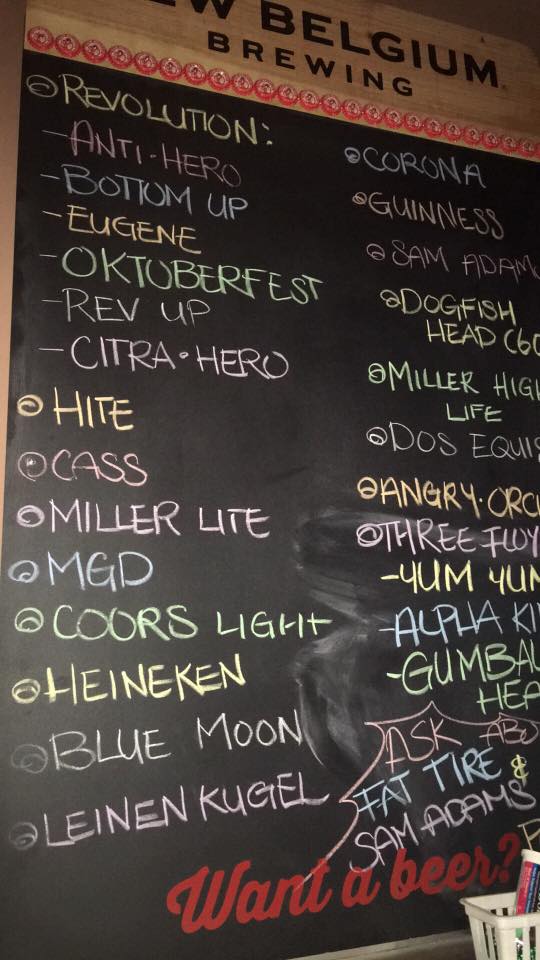 BELGIUM
BREWING
REVOLUTION:
-ANTI-HERO
-BOTTOM UP
-EUGENE
-OKTOBERFEST
-REV UP
-CITRA-HERO
HITE
CASS
MILLER LITE
MGD
COORS LIGHT
HEINEKEN
BLUE MOON
LEINENKUGEL
CORONA
GUINNESS
SAM ADAM
DOGFISH
HEAD (60
MILLER HIG
LIFE
DOS EQUIS
ANGRY·ORC
THREE FLOY
-YUM YUM
-ALPHA KI
-GUMBAL
HEA
ASK ABO
FAT TIRE &
SAM ADAMS
Want a beer?